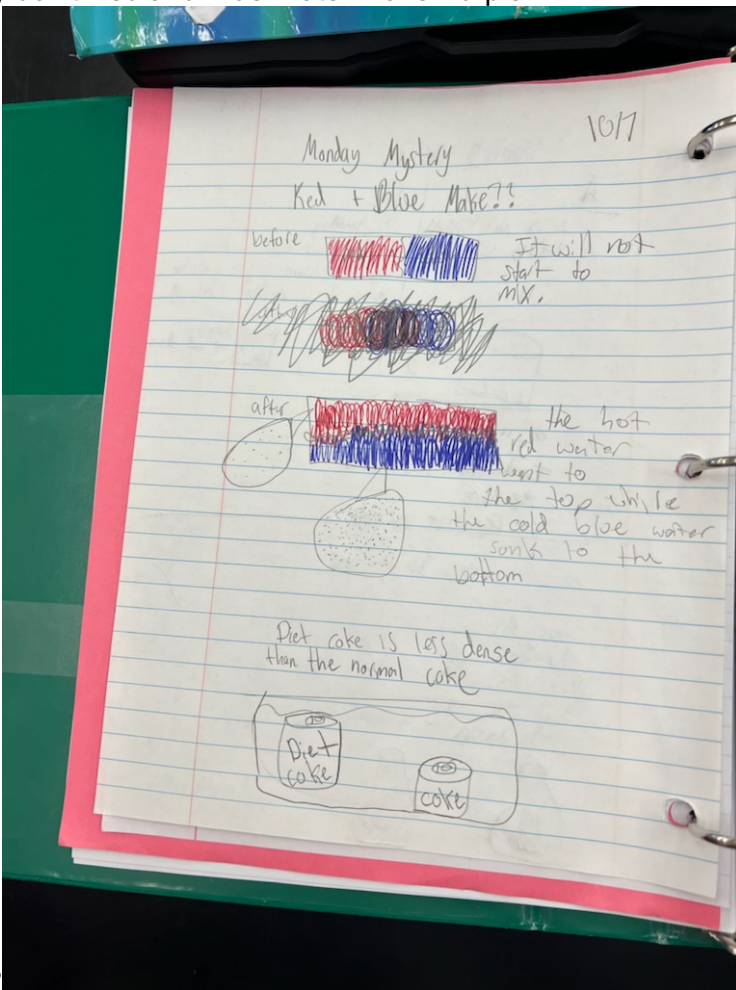 10/7
Monday Mystery
Red + Blue Make??
before
It will not
start to
mix.
after
the hot
red water
went to
the top while
the cold blue water
sunk to the
bottom
Diet coke is less dense
than the normal coke
Diet
coke
coke